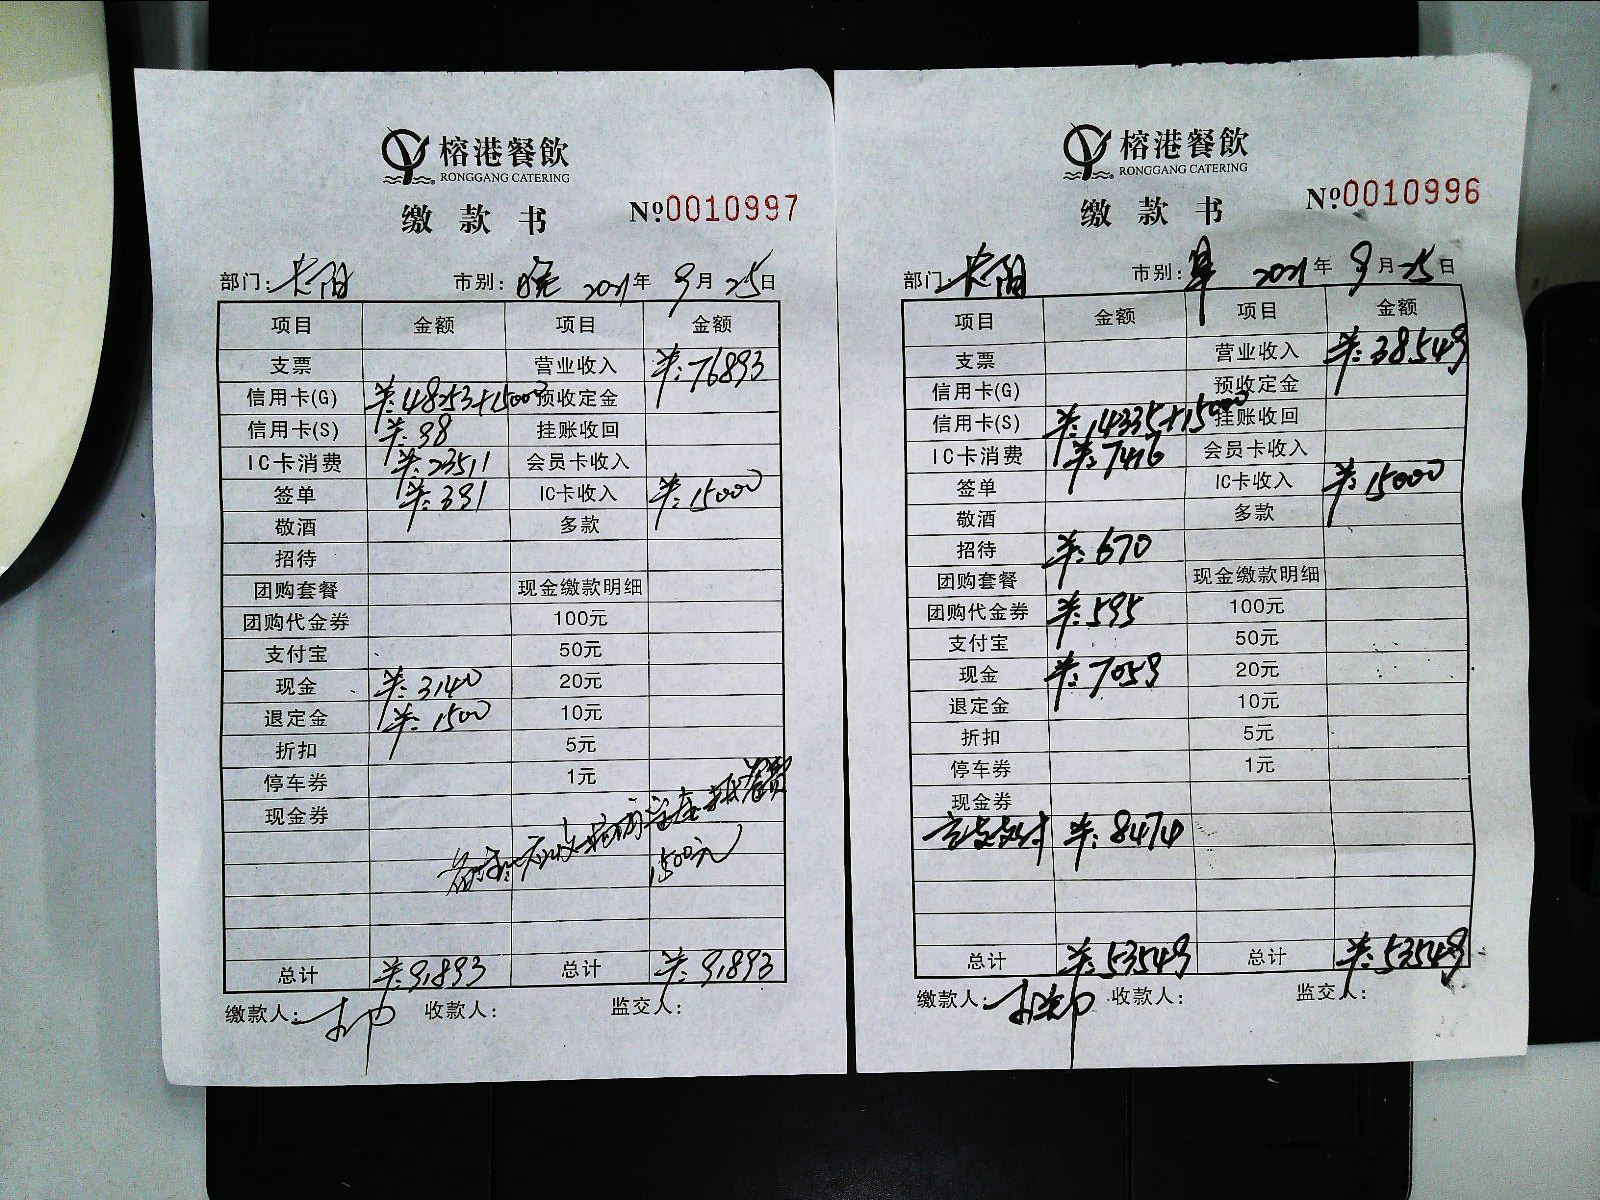 榕港餐飲
RONGGANG CATERING
缴款书 №0010997
部门: 长阳 市别: 晚 2021年 9月 25日
项目 金额 项目 金额
支票 营业收入 ¥:76893
信用卡(G) ¥:48253+15000 预收定金
信用卡(S) ¥:98 挂账收回
IC卡消费 ¥:23511 会员卡收入
签单 ¥:391 IC卡收入 ¥:15000
敬酒 多款
招待
团购套餐 现金缴款明细
团购代金券 100元
支付宝 50元
现金 ¥:3140 20元
退定金 ¥:1500 10元
折扣 5元
停车券 1元
现金券
1500元
总计 ¥:91893 总计 ¥:91893
缴款人: 收款人: 监交人:
榕港餐飲
RONGGANG CATERING
缴款书 №0010996
部门: 长阳 市别: 早 2021年 9月 25日
项目 金额 项目 金额
支票 营业收入 ¥:38549
信用卡(G) 预收定金
信用卡(S) ¥:14335+15000 挂账收回
IC卡消费 ¥:7416 会员卡收入
签单 IC卡收入 ¥:15000
敬酒 多款
招待 ¥:670
团购套餐 现金缴款明细
团购代金券 ¥:595 100元
支付宝 50元
现金 ¥:7059 20元
退定金 10元
折扣 5元
停车券 1元
现金券
¥:8474
总计 ¥:53549 总计 ¥:53549
缴款人: 收款人: 监交人: